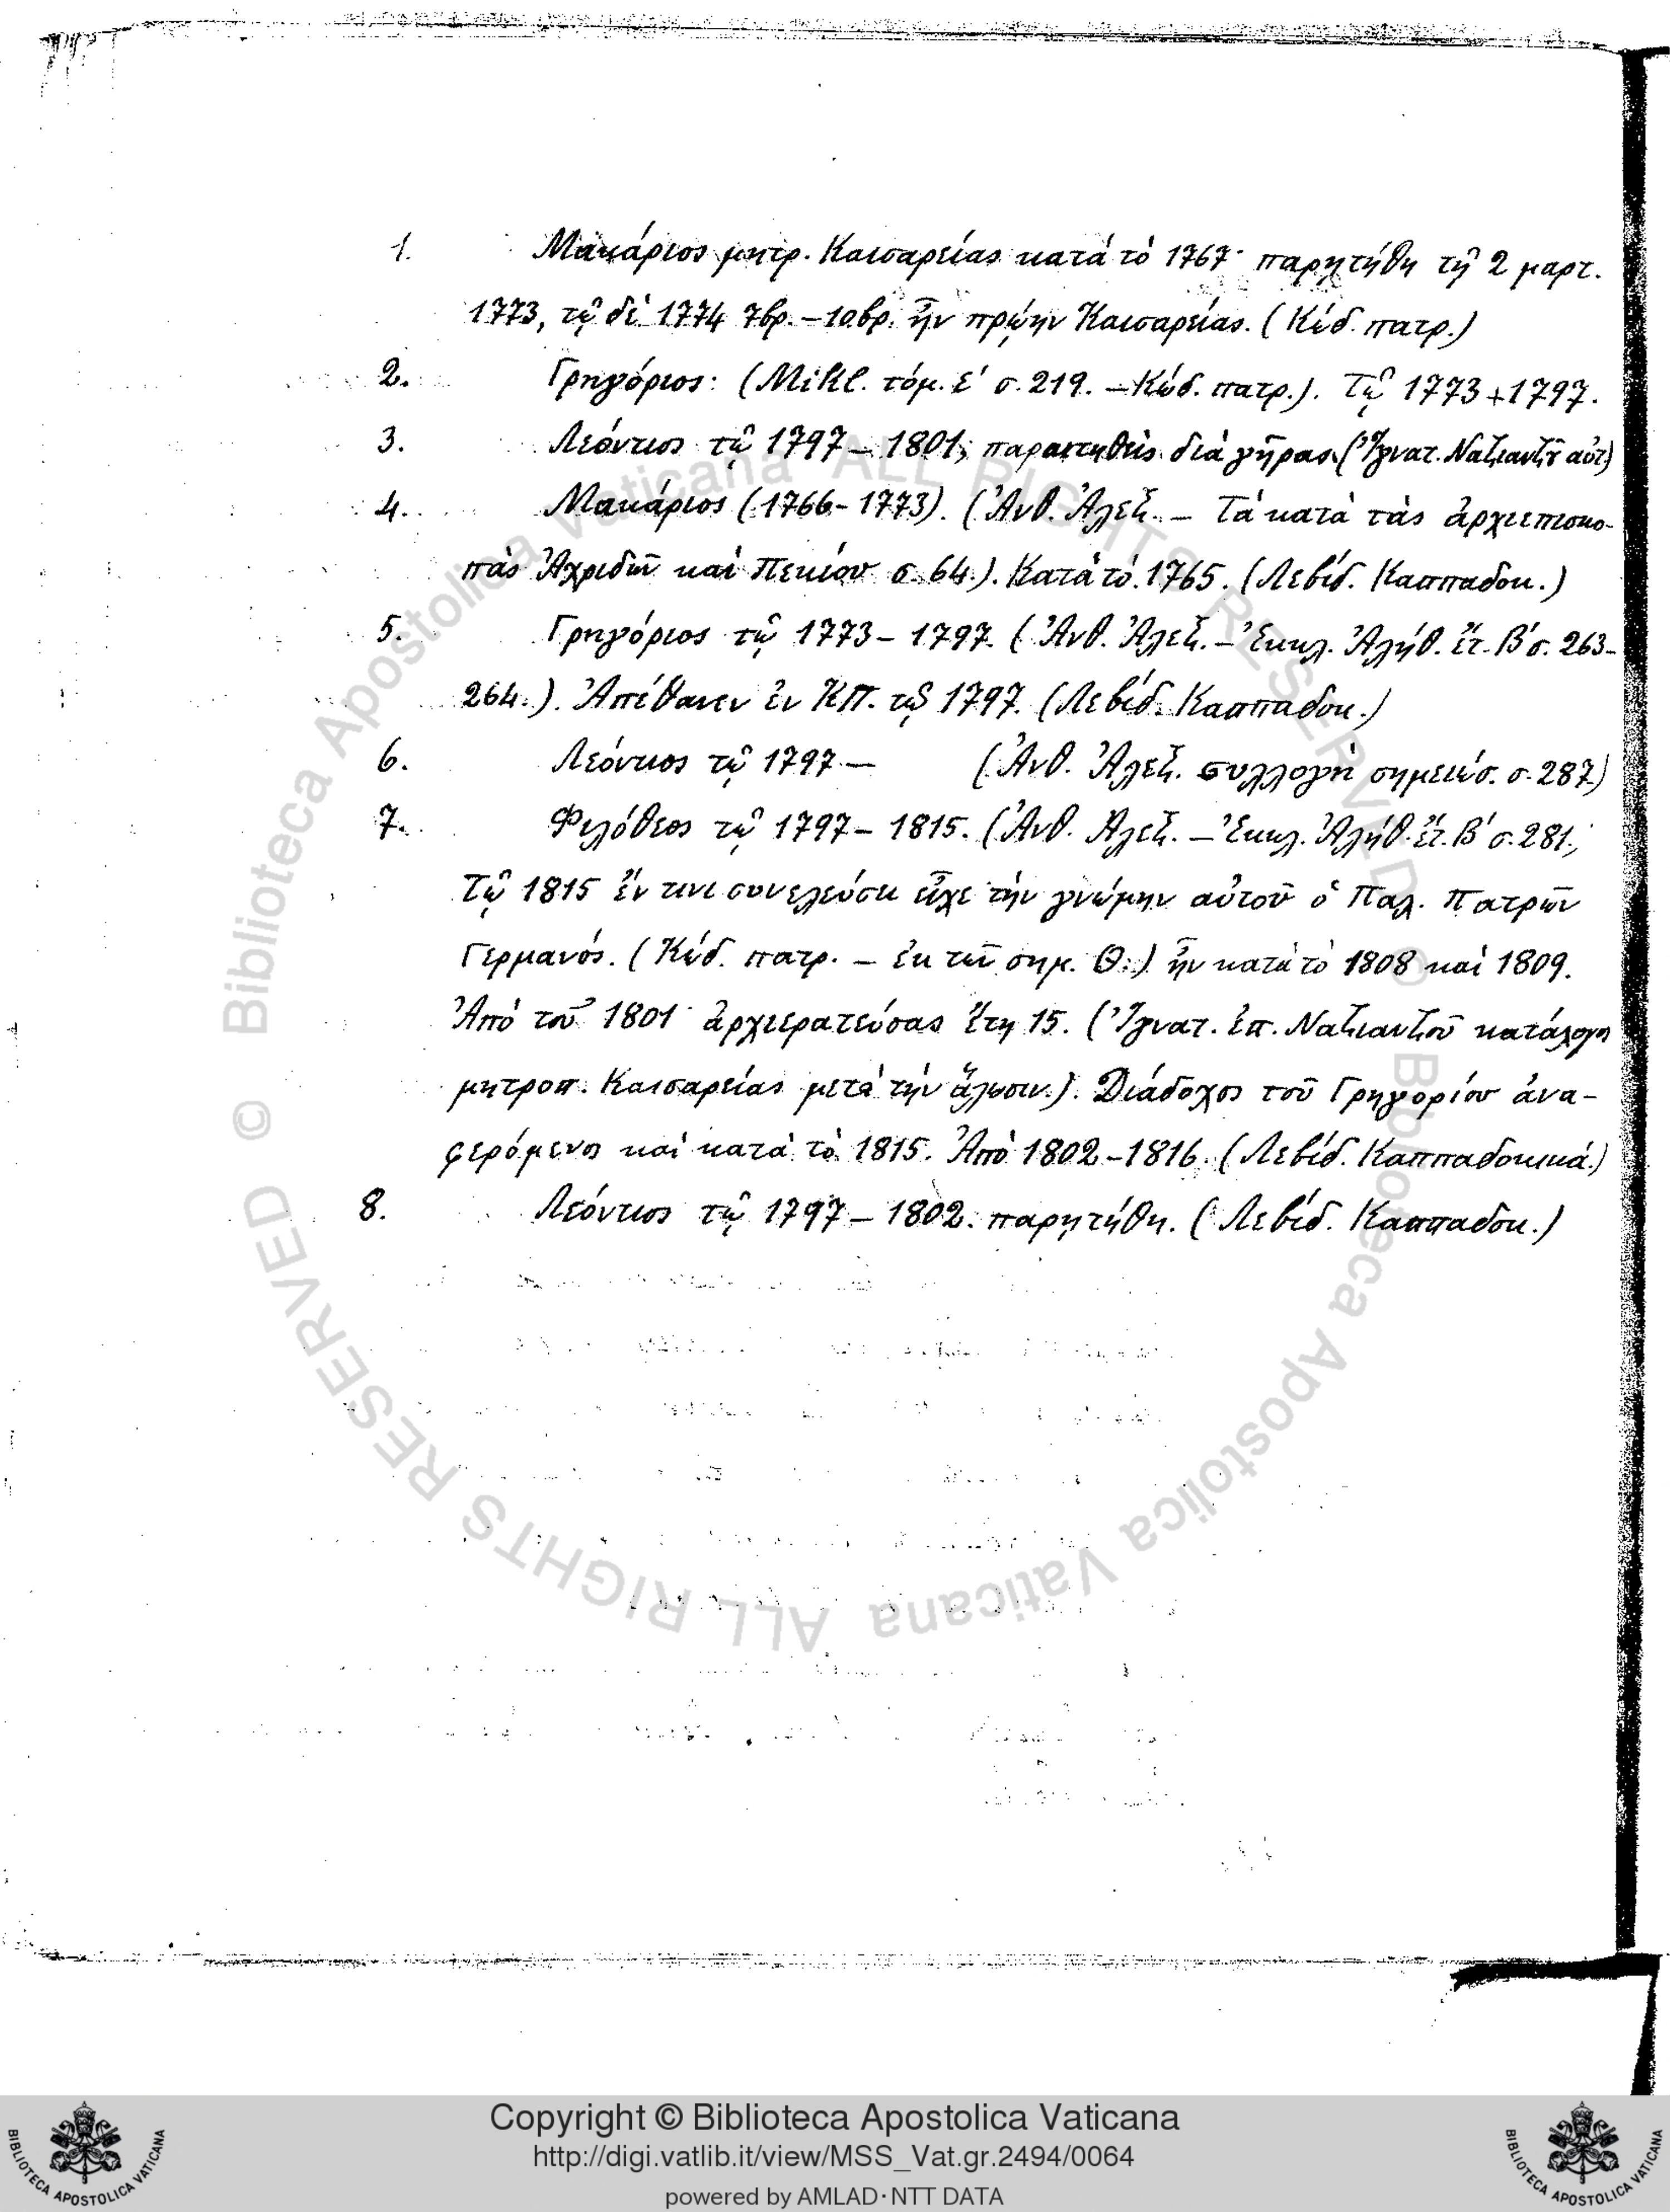 1. Μακάριος μητρ. Καισαρείας κατά τὸ 1767· παρῃτήθη τῇ 2 μαρτ.
1773, τῷ δὲ 1774 7βρ. – 10βρ. ἦν πρῴην Καισαρείας. (Κώδ. πατρ.)
2. Γρηγόριος: (Mikl. τόμ. Ε΄ σ. 219. – Κώδ. πατρ.). Τῷ 1773 + 1797.
3. Λεόντιος τῷ 1797 – 1801, παραιτηθεὶς διά γῆρας. (Ἰγνατ. Ναζιανζοῦ αὐτ)
4. Μακάριος (1766 – 1773). (Ἀνθ. Ἀλεξ. – Τὰ κατὰ τὰς ἀρχιεπισκο-
πὰς Ἀχριδῶν καὶ Πεκίου σ. 64.). Κατὰ τὸ 1765. (Λεβίδ. Καππαδοκ.)
5. Γρηγόριος τῷ 1773 – 1797. (Ἀνθ. Ἀλεξ. – Ἐκκλ. Ἀλήθ. ἔτ. Β΄ σ. 263-
264.). Ἀπέθανεν ἐν ΚΠ. τῷ 1797. (Λεβίδ. Καππαδοκ.)
6. Λεόντιος τῷ 1797 – (Ἀνθ. Ἀλεξ. συλλογὴ σημειώσ. σ. 287)
7. Φιλόθεος τῷ 1797 – 1815. (Ἀνθ. Ἀλεξ. – Ἐκκλ. Ἀλήθ. ἔτ. Β΄ σ. 281.,
Τῷ 1815 ἔν τινι συνελεύσει εἶχε τὴν γνώμην αὐτοῦ ὁ Παλ. Πατρῶν
Γερμανός. (Κώδ. πατρ. – ἐκ τῶν σημ. Θ.) ἦν κατὰ τὸ 1808 καὶ 1809.
Ἀπὸ τοῦ 1801 ἀρχιερατεύσας ἔτη 15. (Ἰγνατ. ἐπ. Ναζιανζοῦ κατάλογος
μητροπ. Καισαρείας μετὰ τὴν ἅλωσιν.). Διάδοχος τοῦ Γρηγορίου ἀνα-
φερόμενος καὶ κατὰ τὸ 1815. Ἀπὸ 1802 – 1816. (Λεβίδ. Καππαδοκικά.)
8. Λεόντιος τῷ 1797 – 1802. παρῃτήθη. (Λεβίδ. Καππαδοκ.)
© Biblioteca Apostolica Vaticana ALL RIGHTS RESERVED
© Biblioteca Apostolica Vaticana ALL RIGHTS RESERVED
BIBLIOTECA APOSTOLICA VATICANA
Copyright © Biblioteca Apostolica Vaticana
http://digi.vatlib.it/view/MSS_Vat.gr.2494/0064
powered by AMLAD·NTT DATA
BIBLIOTECA APOSTOLICA VATICANA